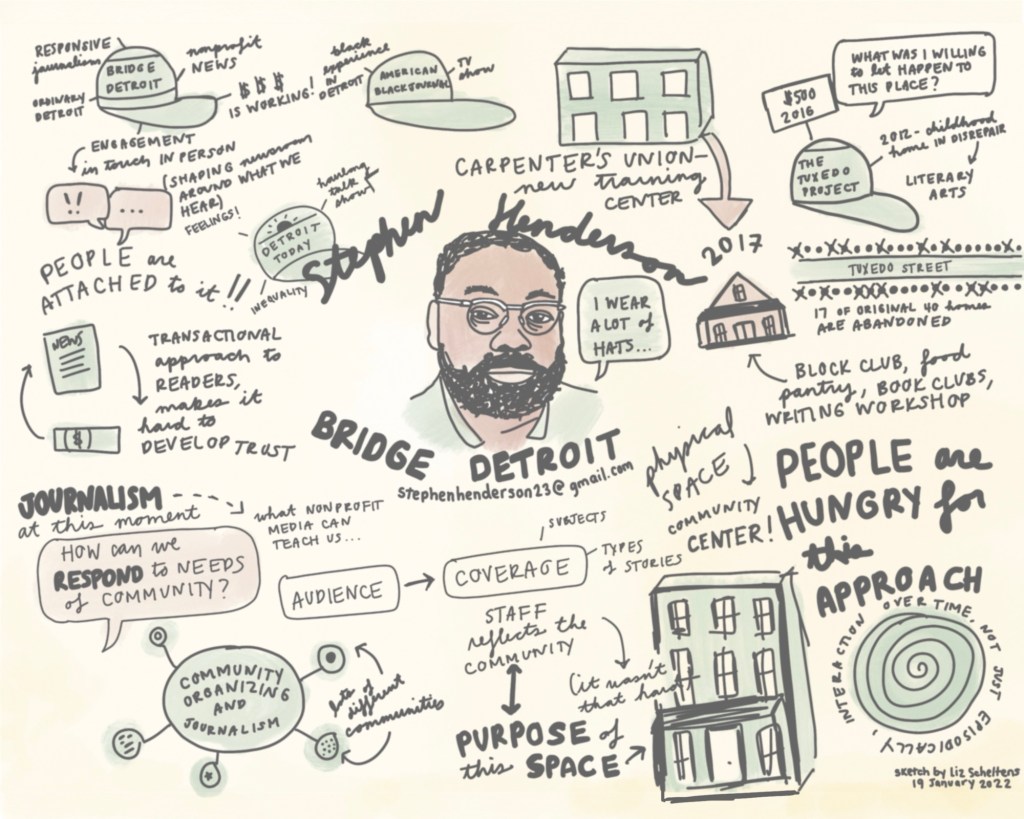 RESPONSIVE
journalism
BRIDGE
DETROIT
nonprofit
NEWS
ORDINARY
DETROIT
$ $ $
IS WORKING!
ENGAGEMENT
in touch IN PERSON
(SHAPING newsroom
AROUND WHAT WE
HEAR)
FEELINGS!
!!
...
PEOPLE are
ATTACHED to it!!
black
experience
IN
DETROIT
AMERICAN
BLACK JOURNAL
TV
show
DETROIT
TODAY
talk
show
INEQUALITY
CARPENTER'S UNION-
new training
CENTER
2017
WHAT WAS I WILLING
to let HAPPEN TO
THIS PLACE?
$500
2016
THE
TUXEDO
PROJECT
2012- childhood
home IN DISREPAIR
LITERARY
ARTS
X..XX...X..XX..X.X.....
TUXEDO STREET
17 OF ORIGINAL 40 homes
ARE ABANDONED
Stephen Henderson
I WEAR
A LOT of
HATS...
BLOCK CLUB, food
pantry, BOOK CLUBS,
WRITING WORKSHOP
NEWS
$
TRANSACTIONAL
approach to
READERS,
makes it
hard to
DEVELOP TRUST
BRIDGE DETROIT
stephenhenderson23@gmail.com
physical
SPACE
COMMUNITY
CENTER!
PEOPLE are
HUNGRY for
this
APPROACH
JOURNALISM
at this moment
what NONPROFIT
MEDIA CAN
TEACH US...
HOW can we
RESPOND to NEEDS
of COMMUNITY?
AUDIENCE
COVERAGE
SUBJECTS
TYPES
of STORIES
STAFF
reflects the
COMMUNITY
(it wasn't
that hard)
PURPOSE of
this SPACE
COMMUNITY
ORGANIZING
AND
JOURNALISM
lots of
different
communities
INTERACTION OVER TIME, NOT JUST EPISODICALLY,
sketch by Liz Scheltens
19 January 2022